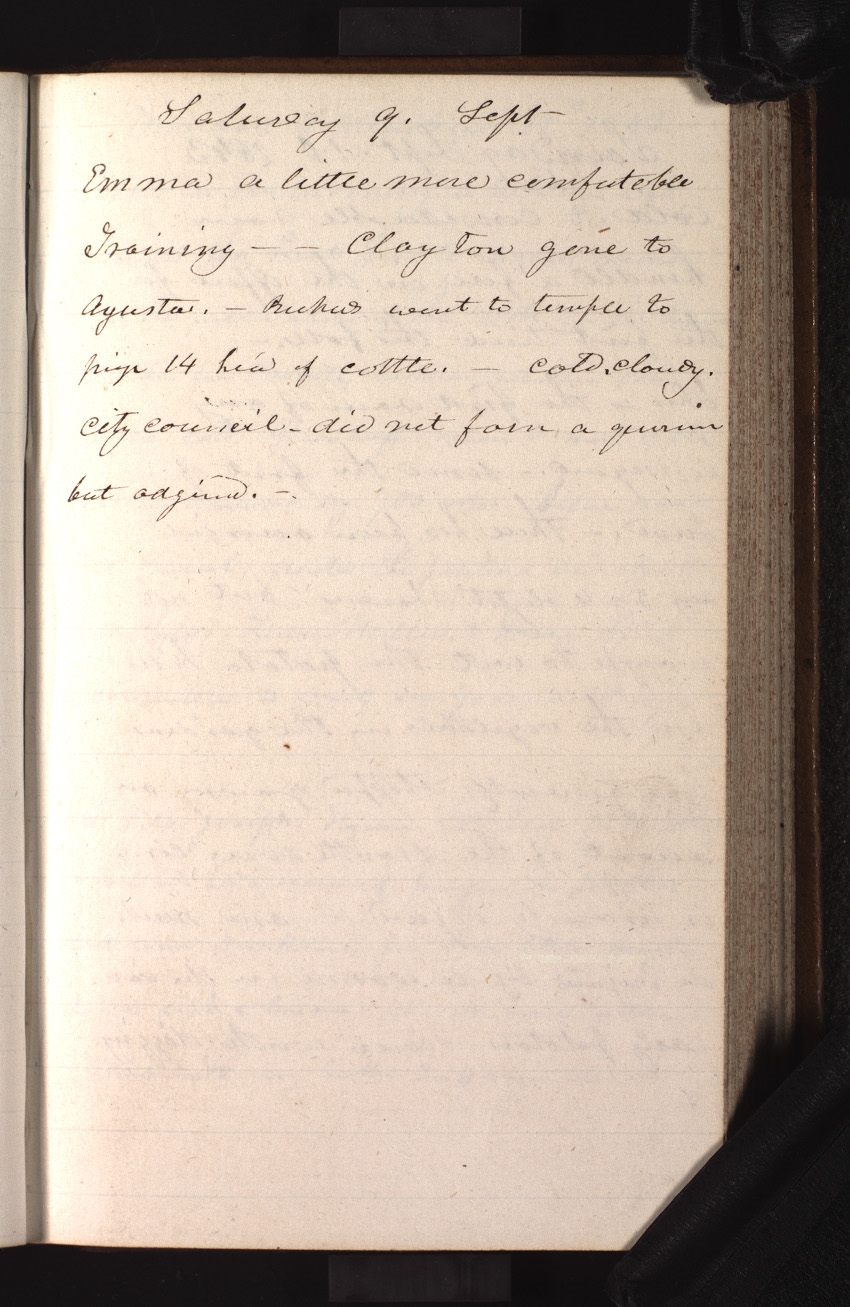 Saturday 9. Sept
Emma a little more comfutable
Training — — Clayton gone to
Agusta. — Richds went to temple to
prize 14 head of cattle. — cold. cloudy.
city council - did not form a quorum
but adgind. -.